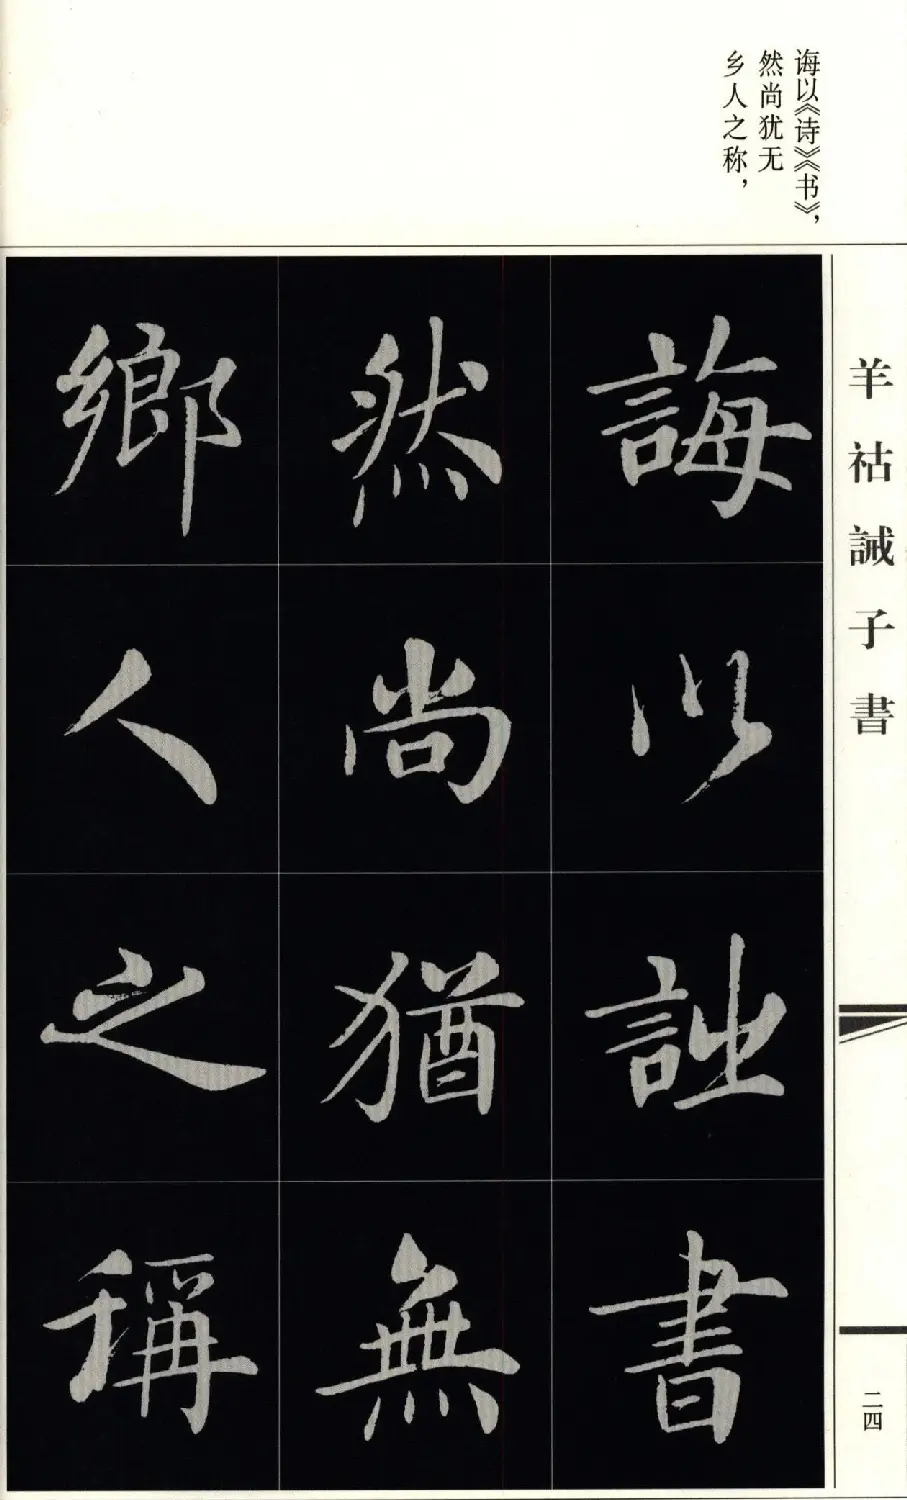 诲以《诗》《书》，
然尚犹无
乡人之称，
羊祜誡子書
誨以詩書
然尚猶無
鄉人之稱
二四